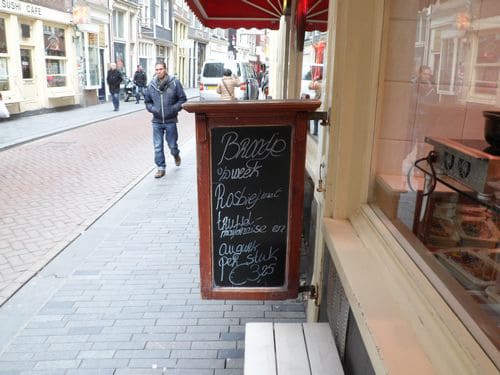 SUSHI CAFE
Broodje
v/d week
Rosbief met
truffel-
mayonaise en
augurk
per stuk
€3,95